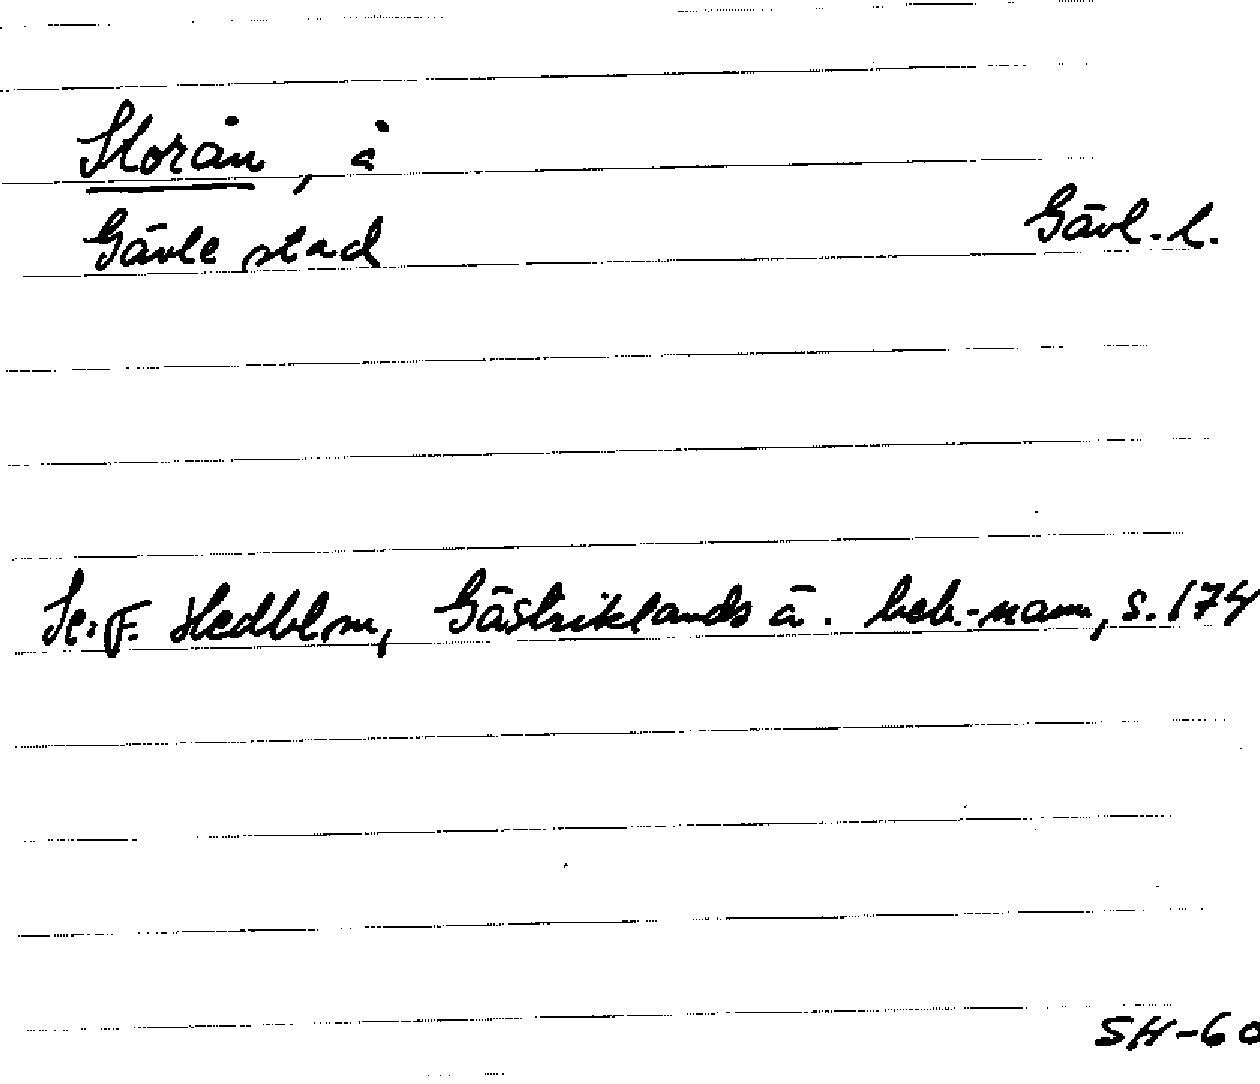 Storån, å
Gävle stad Gävl. l.
Se: F. Hedblom, Gästriklands ä. beb.-namn, s. 174
SH-60